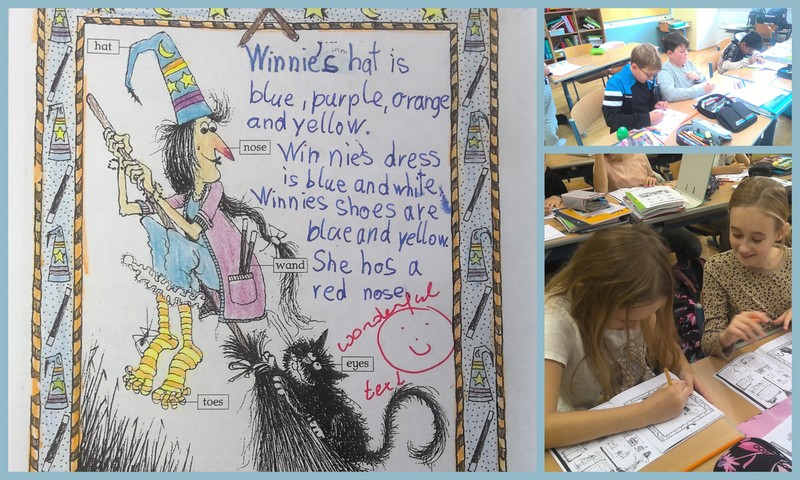 hat
Winnie's hat is
blue, purple, orange
and yellow.
nose
Winnie's dress
is blue and white.
Winnies shoes are
blue and yellow.
wand
She has a
red nose.
wonderful
text
eyes
toes